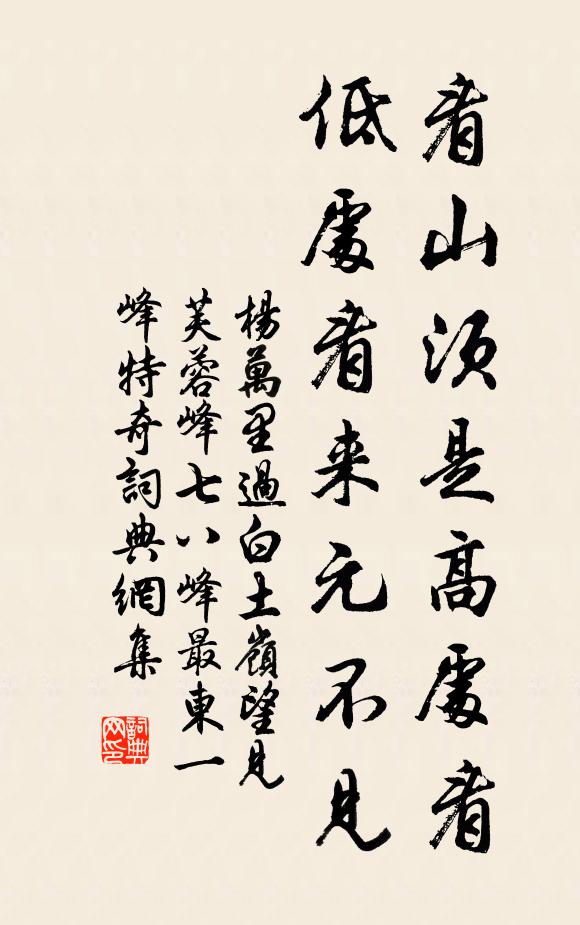 看山須是高處看
低處看来元不見
楊萬里過白土嶺望見
芙蓉峰七八峰最東一
峰特奇詞典網集
詞典
网印